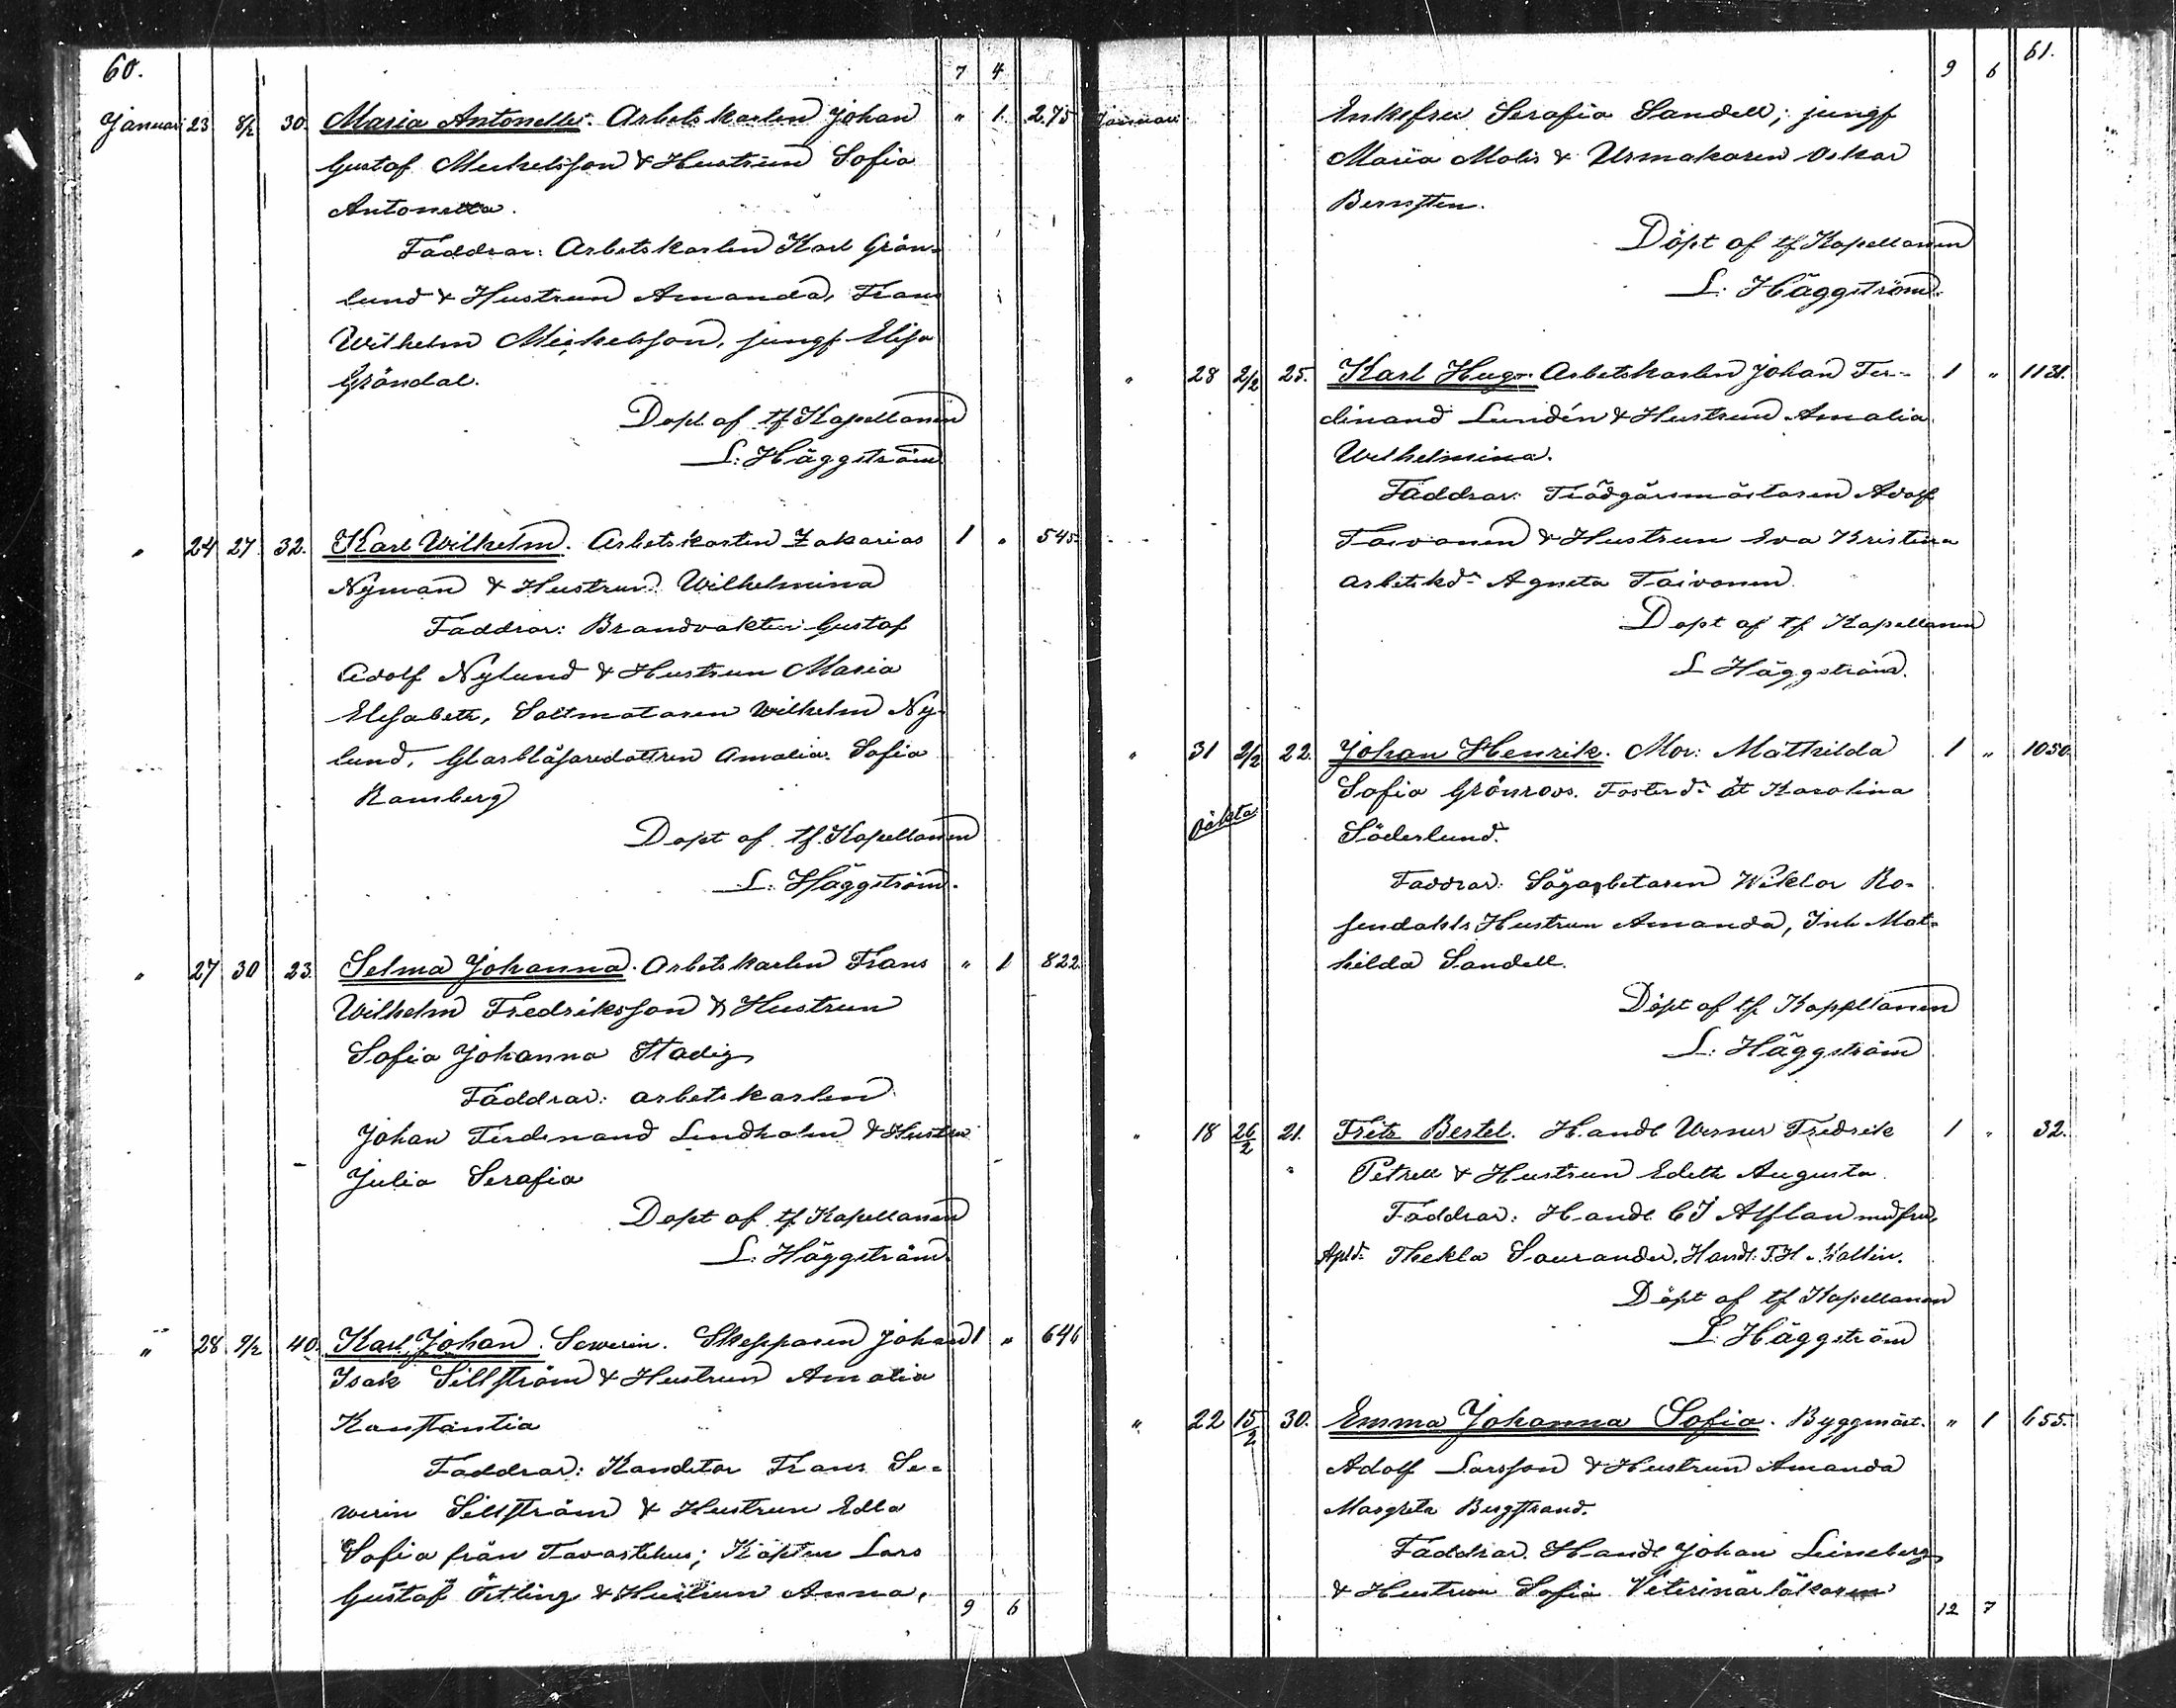 60.
7 4
Januari 23 8/2 30. Maria Antonette. Arbetskarlen Johan " 1 275
Gustaf Mickelsson & Hustrun Sofia
Antonetta.
Faddrar: Arbetskarlen Karl Grön-
lund & Hustrun Amanda, Frans
Wilhelm Mickelsson, jungf Elisa
Gröndal.
Döpt af tf Kapellanen
L. Häggström
" 24 27 32. Karl Wilhelm. Arbetskarlen Zakarias 1 " 545
Nyman & Hustrun Wilhelmina
Faddrar: Brandvakten Gustaf
Adolf Nylund & Hustrun Maria
Elisabeth, Saltmätaren Wilhelm Ny-
lund, Glasblåsaredottren Amalia Sofia
Ramberg
Döpt af tf. Kapellanen
L. Häggström.
" 27 30 23. Selma Johanna. Arbetskarlen Frans " 1 822.
Wilhelm Fredriksson & Hustrun
Sofia Johanna Stadig
Faddrar: arbetskarlen
Johan Ferdinand Lindholm & Hustru
Julia Serafia
Döpt af tf Kapellanen
L. Häggström
" 28 9/2 40. Karl Johan Sewerin. Skepparen Johan 1 " 646
Isak Sillström & Hustrun Amalia
Konstantia
Faddrar: Konditor Frans Se-
werin Sillström & Hustrun Edla
Sofia från Tavastehus; Kapten Lars
Gustaf Östling & Hustrun Anna,
9 6
61.
9 6
Januari Enkefru Serafia Sandell; jungf
Maria Molis & Urmakaren Oskar
Bernsten.
Döpt af tf Kapellanen
L. Häggström.
" 28 2/2 25. Karl Hugo. Arbetskarlen Johan Fer- 1 " 1131.
dinand Lundén & Hustrun Amalia
Wilhelmina.
Faddrar: Trädgårsmästaren Adolf
Toivonen & Hustrun Eva Kristina
arbetskd:r Agneta Toivonen
Döpt af tf Kapellanen
L Häggström.
" 31 2/2 22. Johan Henrik. Mor: Mathilda 1 " 1050
Sofia Grönroos. Fosterd:r åt Karolina
oäkta Söderlund.
Faddrar: Sågarbetaren Wiktor Ro-
sendahls Hustrun Amanda, Inh Mat-
hilda Sandell.
Döpt af tf Kapellanen
L. Häggström
" 18 26/2 21. Fritz Bertel. Handl Werner Fredrik 1 " 32.
Petrell & Hustrun Edith Augusta
Faddrar: Handl C J Asplan med fru,
Thekla Saurander, Handl: F. H. Wallin.
Döpt af tf Kapellanen
L. Häggström
" 22 15/2 30. Emma Johanna Sofia. Byggmäst. " 1 655.
Adolf Larsson & Hustrun Amanda
Margreta Bergstrand.
Faddrar. Handl Johan Lineberg
& Hustrun Sofia Veterinärläkaren
12 7